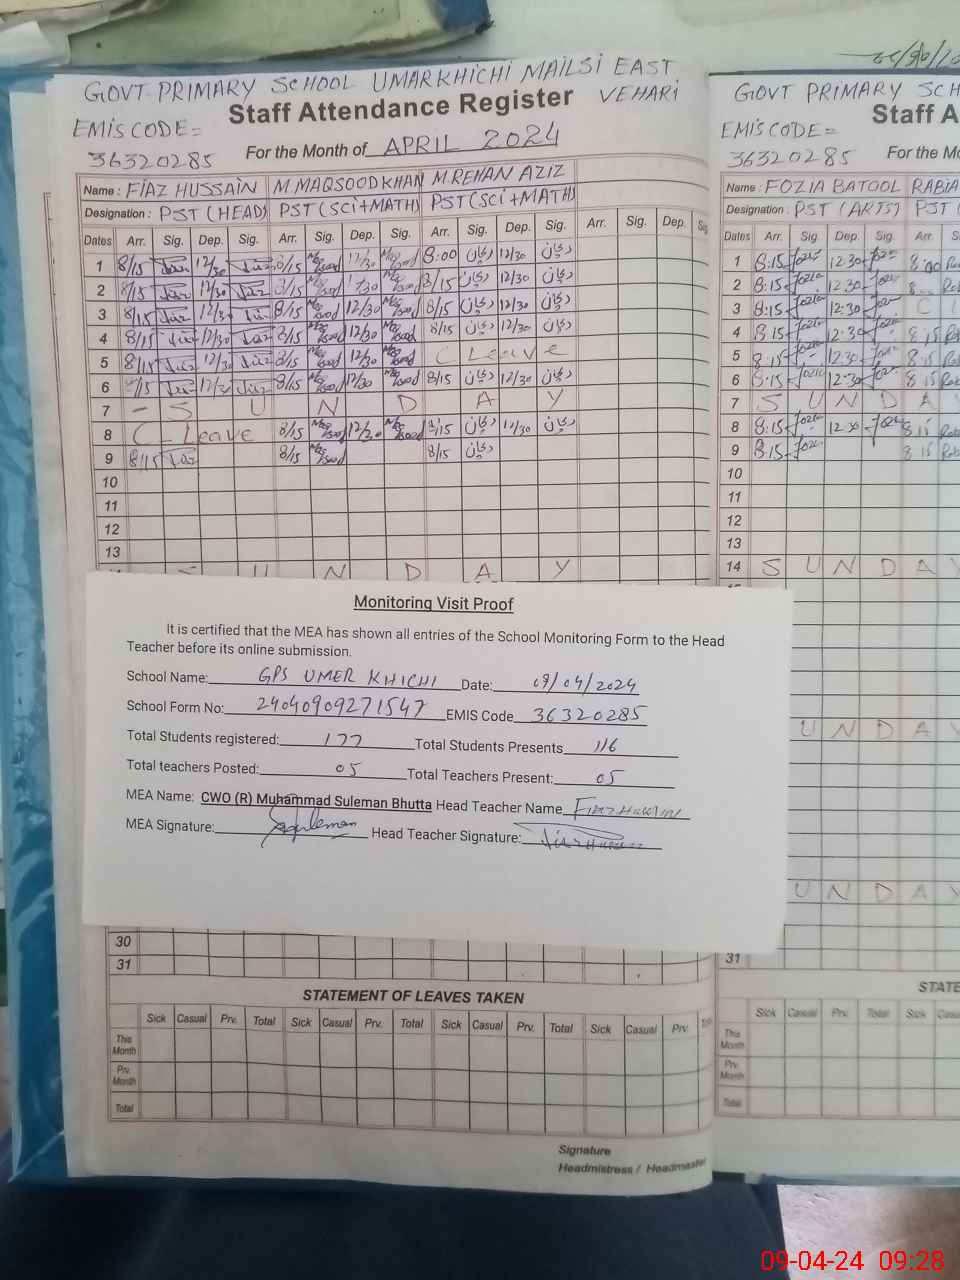 GOVT PRIMARY SCHOOL UMARKHICHI MAILSI EAST
Staff Attendance Register VEHARI
EMIS CODE=
36320285 For the Month of APRIL 2024
Name : FIAZ HUSSAIN M.MAQSOOD KHAN M.REHAN AZIZ
Designation : PST (HEAD) PST (SCI+MATH) PST (SCI+MATH)
Dates Arr. Sig. Dep. Sig. Arr. Sig. Dep. Sig. Arr. Sig. Dep. Sig. Arr. Sig. Dep. Sig
1 8/15 12/30 8/15 12/30 8:00 ریحان 12/30 ریحان
2 8/15 12/30 8/15 ریحان 12/30 ریحان
3 8/15 12/30 8/15 12/30 8/15 ریحان 12/30 ریحان
4 8/15 12/30 8/15 12/30 8/15 ریحان 12/30 ریحان
5 8/15 12/30 8/15 12/30 C Leave
6 12/30 8/15 12/30 8/15 ریحان 12/30 ریحان
7 - S U N D A Y
8 C-Leave 8/15 12/30 8/15 ریحان 12/30 ریحان
9 8/15 8/15 8/15 ریحان
10
11
12
13
S U N D A Y
30
31
STATEMENT OF LEAVES TAKEN
Sick Casual Prv. Total Sick Casual Prv. Total Sick Casual Prv. Total Sick Casual Prv.
This Month
Prv. Month
Total
Signature
Headmistress / Headmaster
GOVT PRIMARY SCH
EMIS CODE= Staff A
36320285 For the M
Name : FOZIA BATOOL RABIA
Designation : PST (ARTS) PST
Dates Arr. Sig. Dep. Sig. Arr.
1 8:15 12.30 8:00
2 8:15 12.30
3 8:15 12:30 C
4 8.15 12.30 8.15
5 8.15 12.30 8.15
6 8.15 12.30 8.15
7 S U N D A Y
8 8:15 12 30 8 15
9 8.15 8 15
10
11
12
13
14 S U N D A Y
U N D A Y
U N D A Y
31
STATE
Sick Casual Prv. Total Sick
This Month
Prv. Month
Total
Monitoring Visit Proof
It is certified that the MEA has shown all entries of the School Monitoring Form to the Head
Teacher before its online submission.
School Name: GPS UMER KHICHI Date: 09/04/2024
School Form No: 24040909271547 EMIS Code 36320285
Total Students registered: 177 Total Students Presents 116
Total teachers Posted: 05 Total Teachers Present: 05
MEA Name: CWO (R) Muhammad Suleman Bhutta Head Teacher Name Fiaz Hussain
MEA Signature: Suleman Head Teacher Signature:
09-04-24 09:28